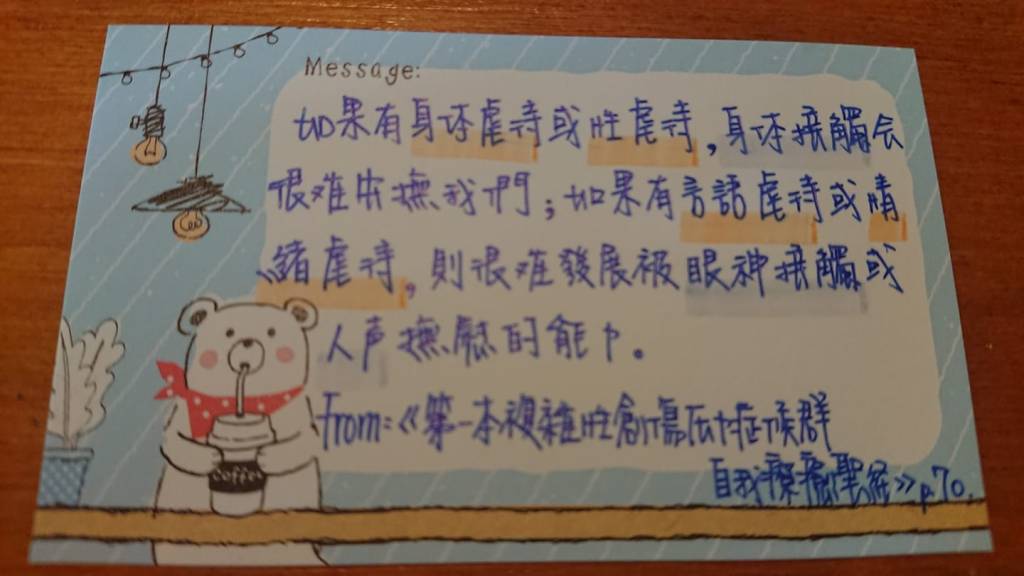 Message:
如果有身体虐待或性虐待，身体接觸会
很难安撫我們；如果有言語虐待或情
緒虐待，則很难發展被眼神接觸或
人声撫慰的能力。
from:《第一本複雜性創傷后壓症候群
自我療癒聖经》p.70.
coffee